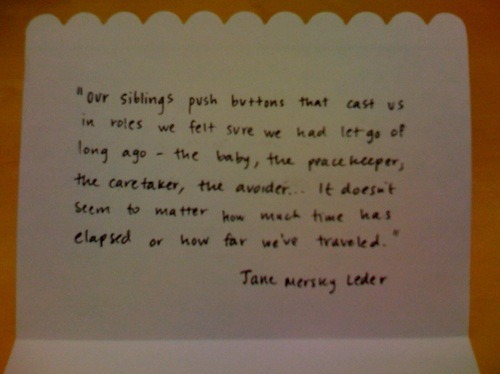 "Our siblings push buttons that cast us
in roles we felt sure we had let go of
long ago - the baby, the peacekeeper,
the caretaker, the avoider... It doesn't
seem to matter how much time has
elapsed or how far we've traveled."
Jane Mersky Leder